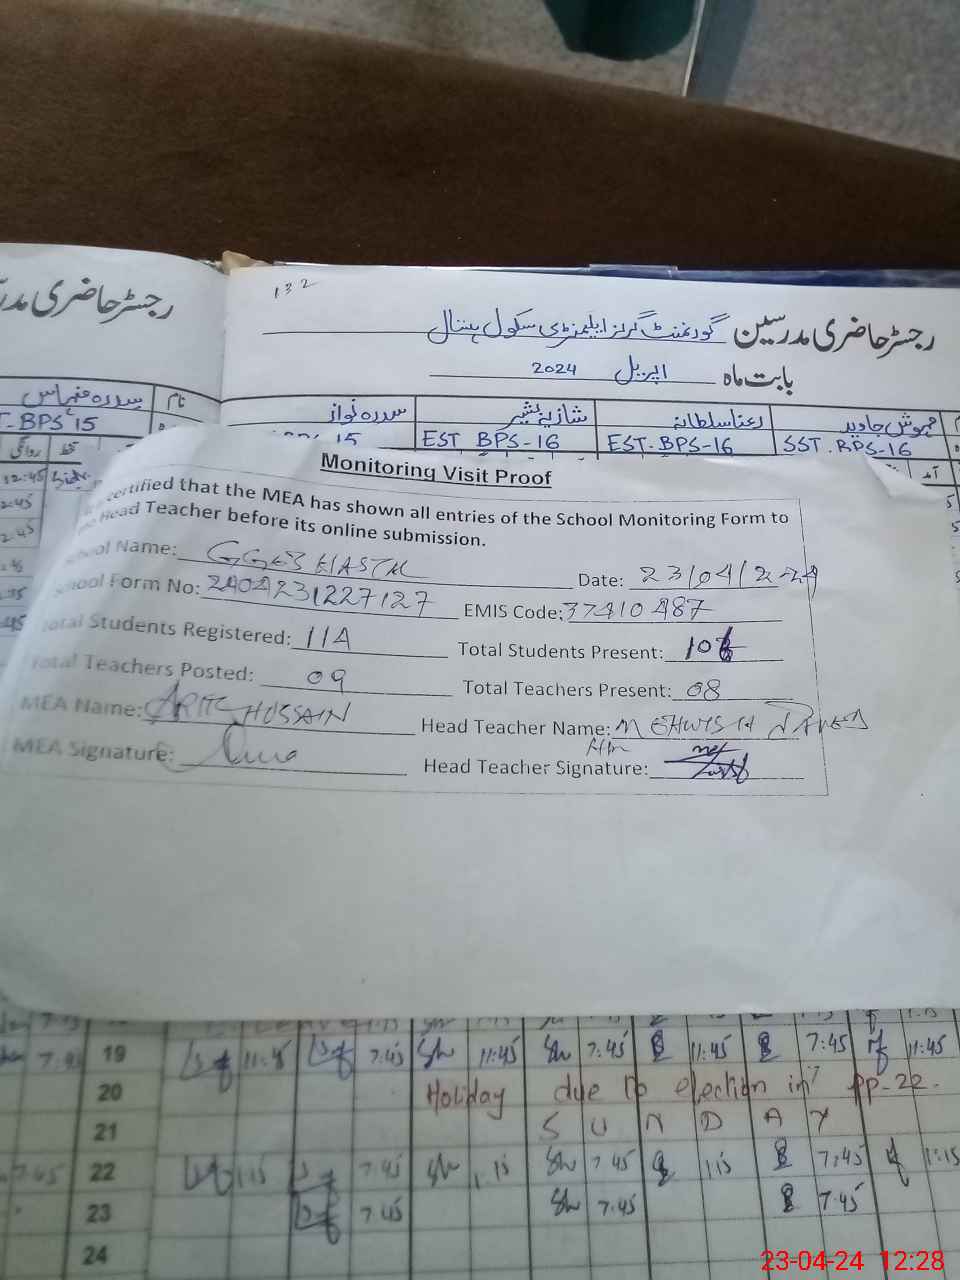 رجسٹر حاضری مدر
132
رجسٹر حاضری مدرسین گورنمنٹ گرلز ایلیمنٹری سکول ہستال
بابت ماہ اپریل 2024
نام سدرہ منہاس
سدرہ نواز شازیہ بشیر رعنا سلطانہ مہوش جاوید
BPS 15
15 EST BPS-16 EST. BPS-16 SST. BPS-16
روانگی
آمد
12:45
Monitoring Visit Proof
certified that the MEA has shown all entries of the School Monitoring Form to
Head Teacher before its online submission.
School Name: GGES HASTAL Date: 23/04/2024
School Form No: 2404231227127 EMIS Code: 37410487
Total Students Registered: 114 Total Students Present: 106
Total Teachers Posted: 09 Total Teachers Present: 08
MEA Name: HUSSAIN Head Teacher Name: MEHWISH JAVED
MEA Signature: Head Teacher Signature:
19 11:45 7:45 11:45 7:45 11:45 7:45 11:45
20 Holiday due to election in PP-22.
21 SUNDAY
7:45 22 1:15 7:45 1:15 7:45 1:15 7:45 1:15
23 7:45 7:45 7:45
24
23-04-24 12:28